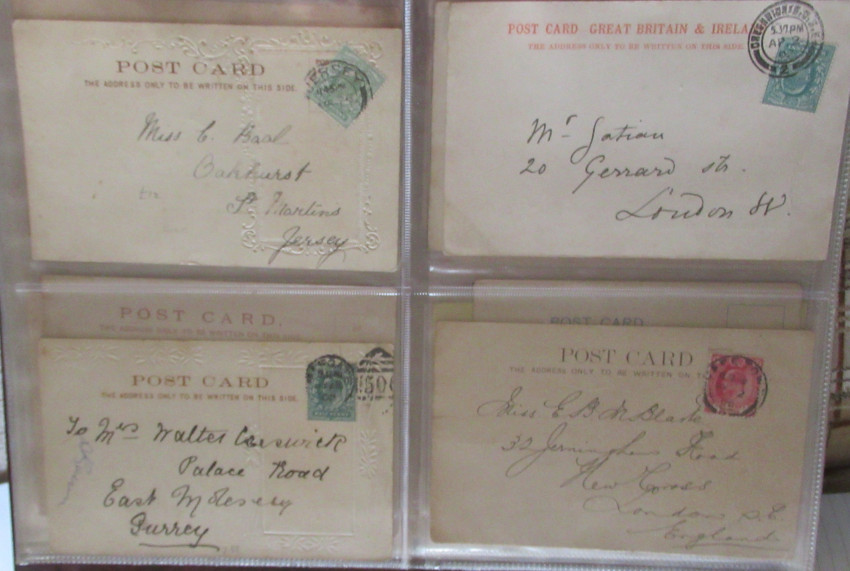 POST CARD
THE ADDRESS ONLY TO BE WRITTEN ON THIS SIDE.
JERSEY
Miss C. Baal
Oakhurst
St Martins
Jersey
POST CARD - GREAT BRITAIN & IRELA
THE ADDRESS ONLY TO BE WRITTEN ON THIS SIDE.
5.37PM
Mr
20 Gerrard St.
London W.
POST CARD.
THE ADDRESS ONLY TO BE WRITTEN
POST CARD
THE ADDRESS ONLY TO BE WRITTEN ON THIS SIDE.
To Mrs Walter
Palace Road
East Molesey
Surrey
POST CARD
POST CARD
THE ADDRESS ONLY TO BE WRITTEN ON THIS
Miss E. B. Blake
32 Jerningham Road
New Cross
London S.E.
England